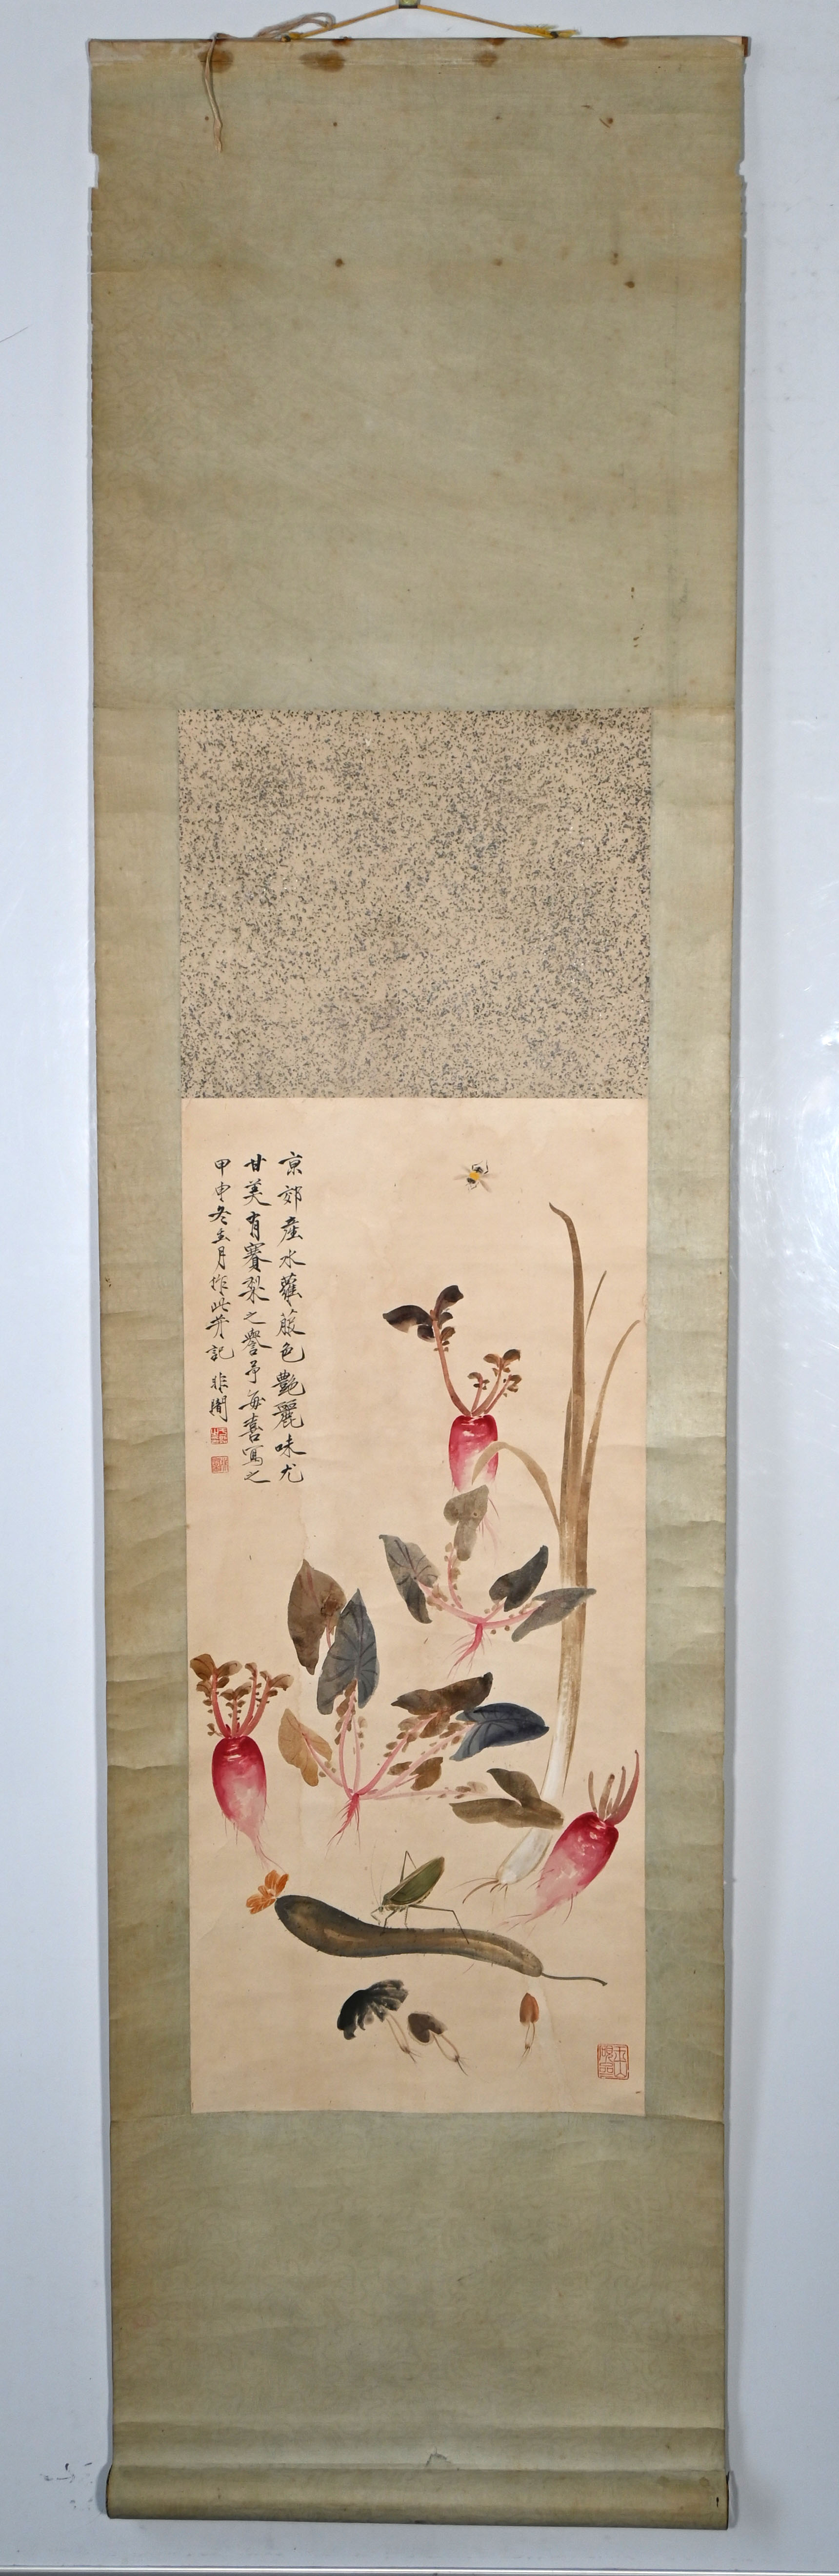 京郊產水蘿蔔色艷麗味尤
甘美有賽梨之譽予每喜寫之
甲申冬五月作此并記 非闇